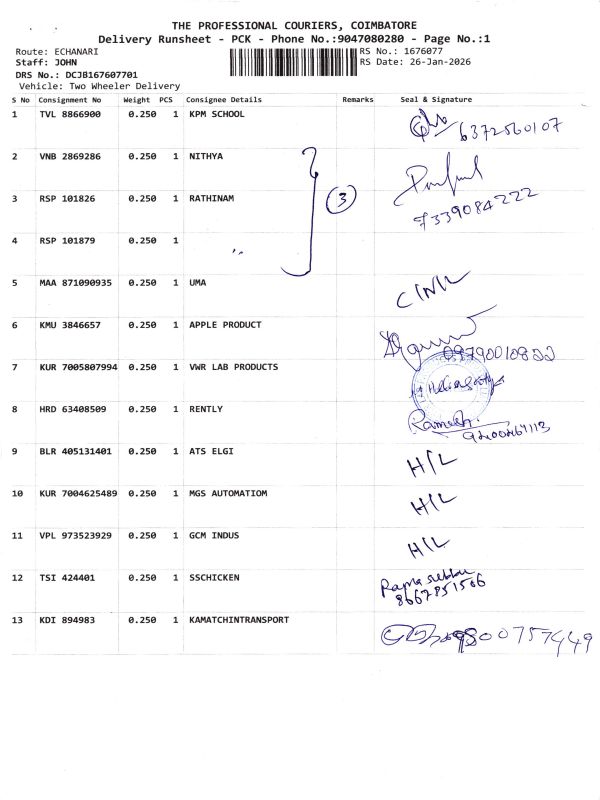 THE PROFESSIONAL COURIERS, COIMBATORE
Delivery Runsheet - PCK - Phone No.:9047080280 - Page No.:1
Route: ECHANARI
RS No.: 1676077
Staff: JOHN
RS Date: 26-Jan-2026
DRS No.: DCJB167607701
Vehicle: Two Wheeler Delivery
S No Consignment No Weight PCS Consignee Details Remarks Seal & Signature
1 TVL 8866900 0.250 1 KPM SCHOOL
6372560107
2 VNB 2869286 0.250 1 NITHYA
3 RSP 101826 0.250 1 RATHINAM 3
7339084222
4 RSP 101879 0.250 1 "
5 MAA 871090935 0.250 1 UMA
6 KMU 3846657 0.250 1 APPLE PRODUCT
7 KUR 7005807994 0.250 1 VWR LAB PRODUCTS
8 HRD 63408509 0.250 1 RENTLY Ramesh.
9 BLR 405131401 0.250 1 ATS ELGI H/L
10 KUR 7004625489 0.250 1 MGS AUTOMATIOM H/L
11 VPL 973523929 0.250 1 GCM INDUS H/L
12 TSI 424401 0.250 1 SSCHICKEN
8667851506
13 KDI 894983 0.250 1 KAMATCHINTRANSPORT